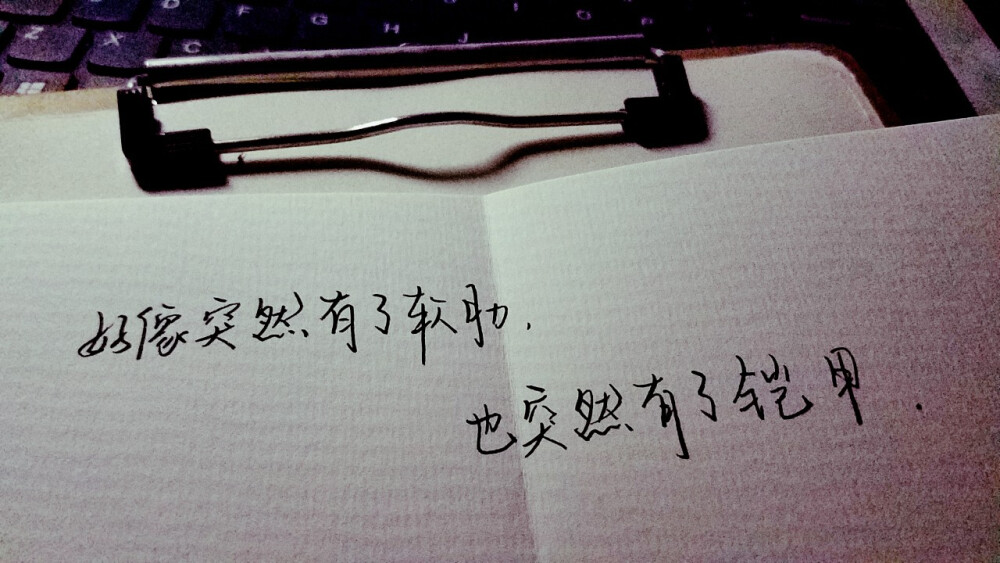 Z X C D F G H J I O P
好像突然有了软肋.
也突然有了铠甲.